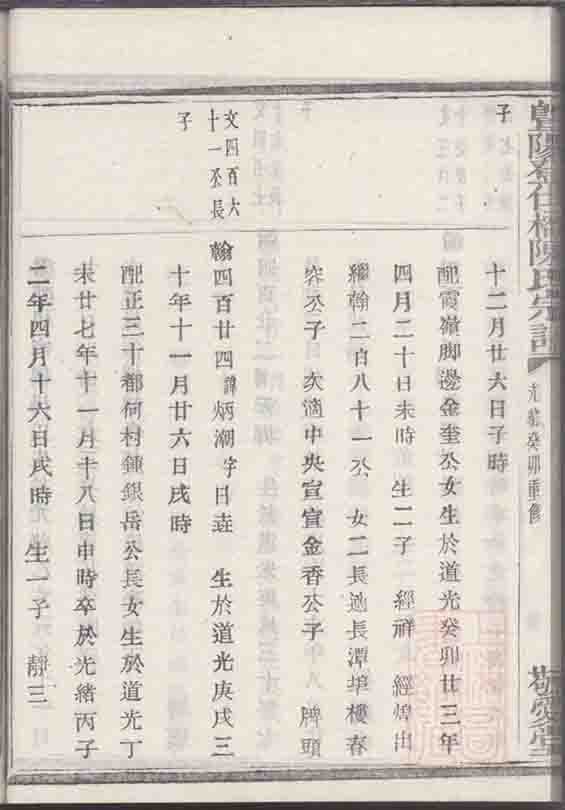 暨陽
橋陳氏宗譜
光緒癸卯重修
敬愛堂
子
十二月廿六日子時
配霞嶺脚邊金奎公女生於道光癸卯廿三年
四月二十日未時 生二子 經祥 經煌出
繼翰二百八十一公 女二長適長潭埠樓春
容公子 次適中央宣宣金香公子 脾頭
文四百六
十一公長
子
翰四百廿四諱炳潮字日垚 生於道光庚戌三
十年十一月廿六日戌時
配正三十都何村鍾銀岳公長女生於道光丁
未廿七年十一月十八日申時卒於光緒丙子
二年四月十六日戌時 生一子 靜三